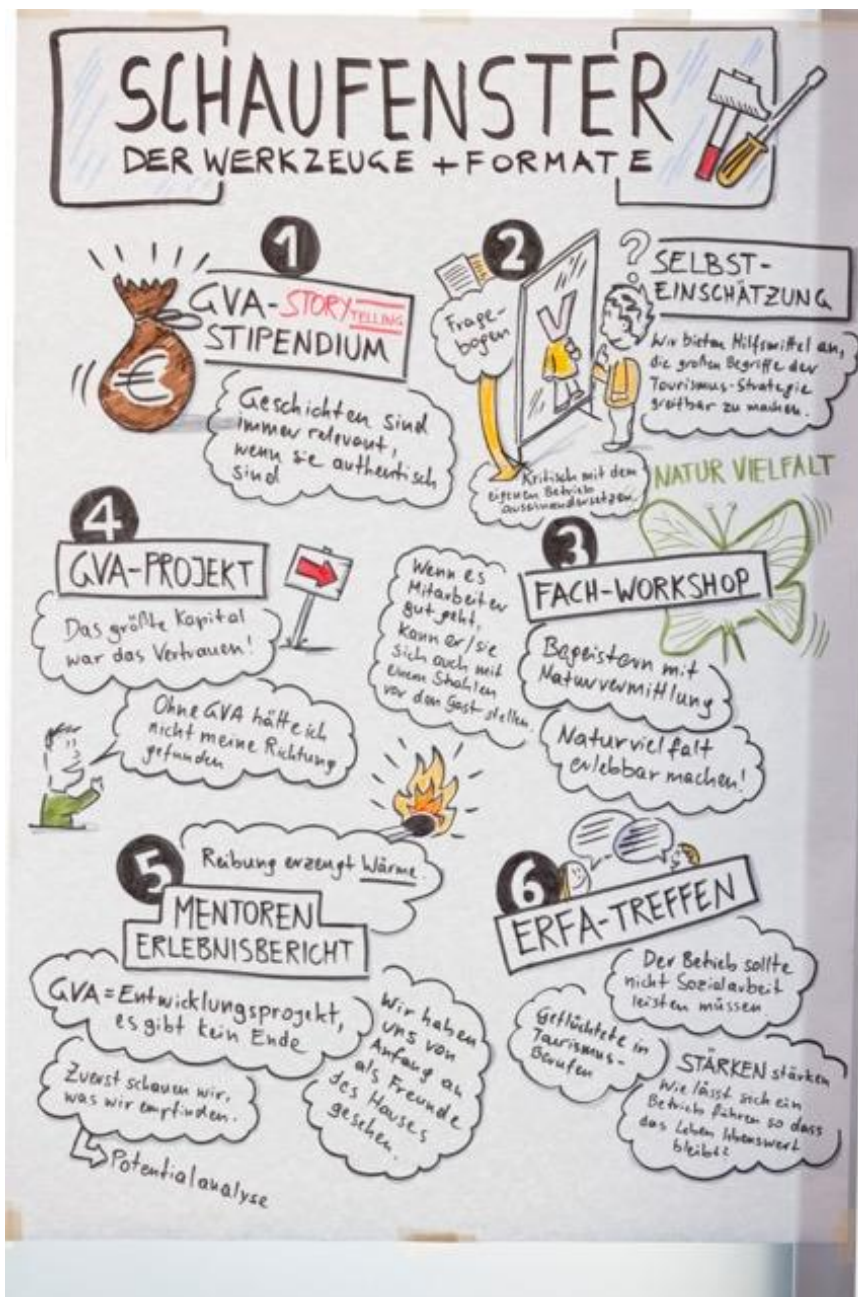 SCHAUFENSTER
DER WERKZEUGE + FORMATE
1
GVA-STORYTELLING
STIPENDIUM
€
Geschichten sind
immer relevant,
wenn sie authentisch
sind
2
Frage-
bogen
V
?
SELBST-
EINSCHÄTZUNG
Wir bieten Hilfsmittel an,
die großen Begriffe der
Tourismus-Strategie
greifbar zu machen.
Kritisch mit dem
eigenen Betrieb
auseinandersetzen.
NATUR VIELFALT
3
FACH-WORKSHOP
Wenn es
Mitarbeiter
gut geht,
kann er/sie
sich auch mit
einem Strahlen
vor den Gast stellen.
Begeistern mit
Naturvermittlung
Naturvielfalt
erlebbar machen!
4
GVA-PROJEKT
Das größte Kapital
war das Vertrauen!
Ohne GVA hätte ich
nicht meine Richtung
gefunden
5
Reibung erzeugt Wärme.
MENTOREN
ERLEBNISBERICHT
GVA = Entwicklungsprojekt,
es gibt kein Ende
Zuerst schauen wir,
was wir empfinden.
Potentialanalyse
Wir haben
uns von
Anfang an
als Freunde
des Hauses
gesehen.
6
ERFA-TREFFEN
Der Betrieb sollte
nicht Sozialarbeit
leisten müssen
Geflüchtete in
Tourismus-
Berufen
STÄRKEN stärken
Wie lässt sich ein
Betrieb führen so dass
das Leben lebenswert
bleibt?